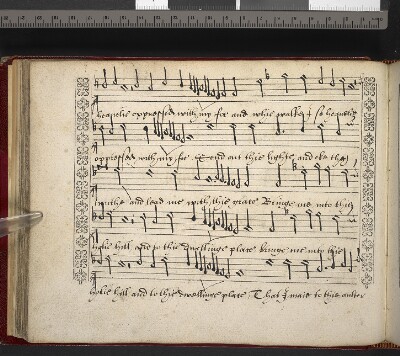 heavelie oppressed with my foe and whie walke I so heavelie
oppressed with my foe. Send out thie lighte and eke thy
truthe and lead me with thie grace Bringe me into thie
holie hill and to thie dwellinge place bringe me into thie
holie hill and to thie dwellinge place, That I maie to thie aulter